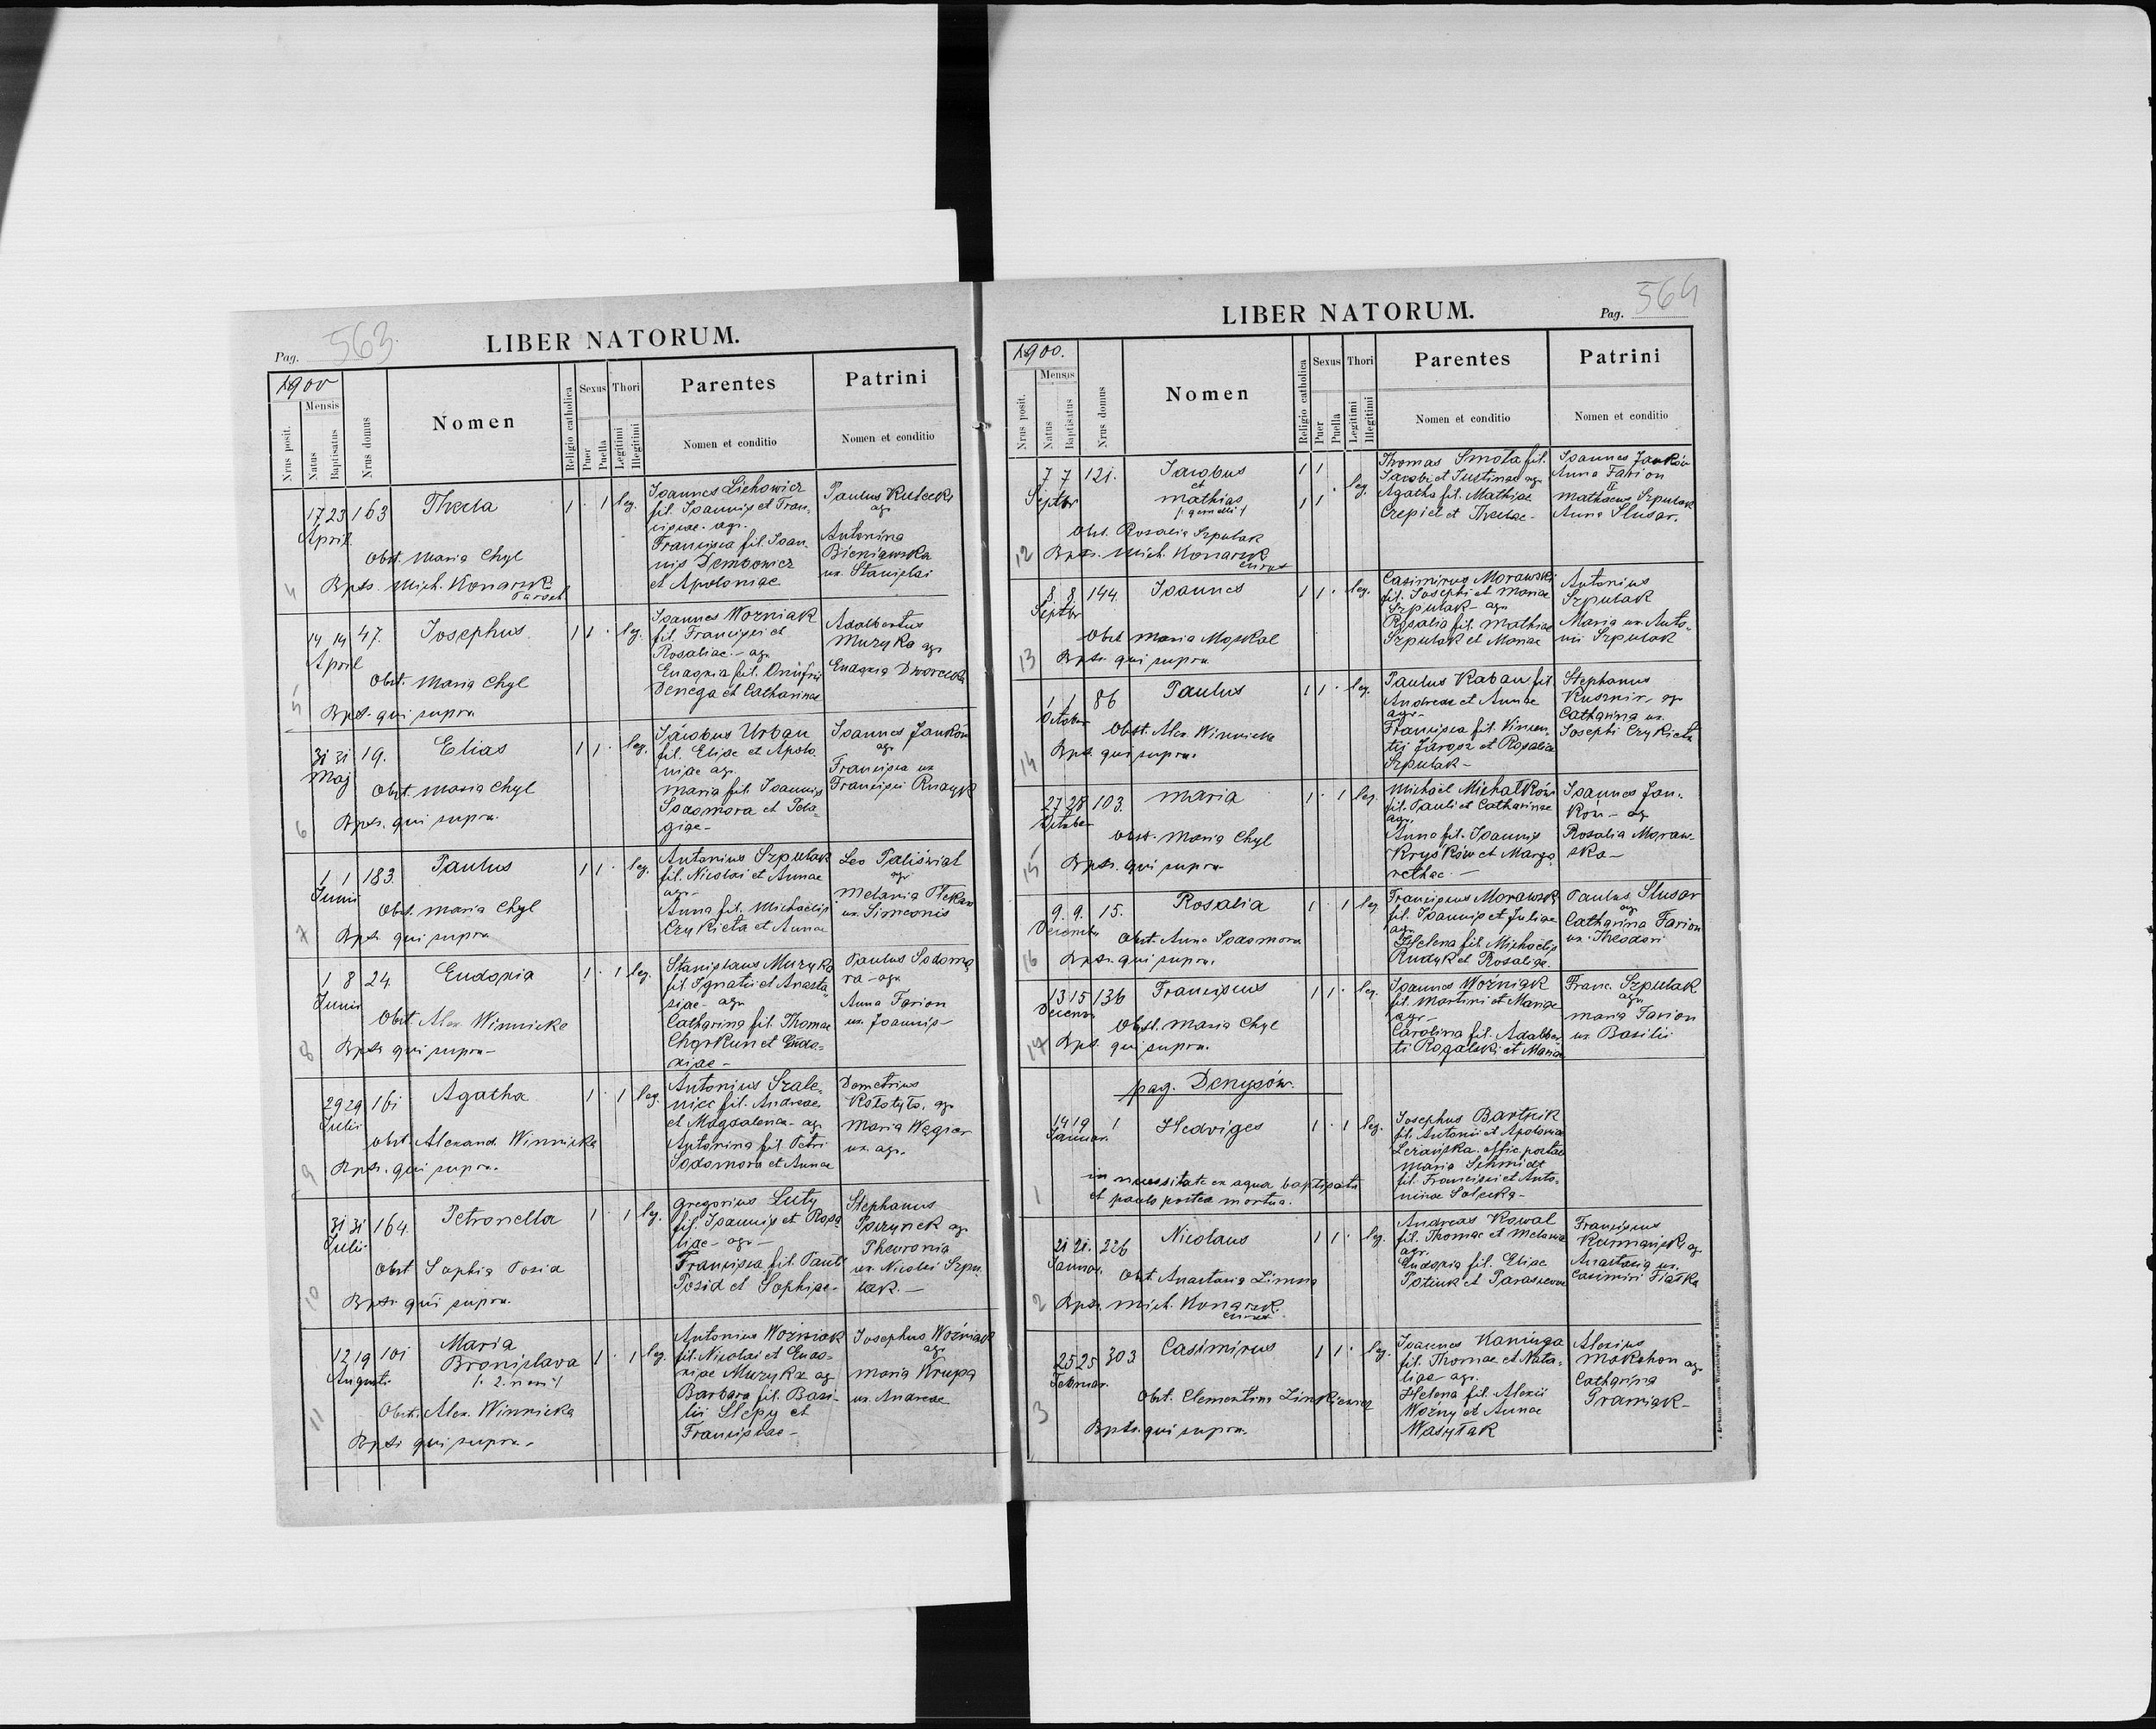 Pag. 563
LIBER NATORUM.
1900
Mensis
Nrus posit.
Natus
Baptisatus
Nrus domus
Nomen
Religio catholica
Sexus
Puer
Puella
Thori
Legitimi
Illegitimi
Parentes
Nomen et conditio
Patrini
Nomen et conditio
4
17 23 163 Thecla 1 · 1 leg.
April
Obst. Maria Chyl
Bpts. Mich. Konarzyk
Paroch
Joannes Lichowicz
fil. Joannis et Fran-
ciscae. agr.
Francisca fil. Joan
nis Dembowicz
et Apoloniae
Paulus Kulecki
agr.
Antonina
Bieniawska
ux. Stanislai
5
14 14 47. Josephus 1 1 · leg.
April
Obst. Maria Chyl
Bpts. qui supra
Joannes Woźniak
fil. Francisci et
Rosaliae. - agr.
Eudoxia fil. Onufrii
Denega et Catharinae
Adalbertus
Muzyka agr
Eudoxia Dworecka
6
31 31 19. Elias 1 1 · leg.
Maj
Obst. Maria Chyl
Bpts. qui supra.
Jacobus Urban
fil. Eliae et Apolo
niae agr.
Maria fil. Joannis
Sodomora et Pela-
giae -
Joannes Janków
agr
Francisca ux
Francisci Rudyk
7
1 1 183. Paulus 1 1 · leg.
Junii
Obst. Maria Chyl
Bpts qui supra
Antonius Szpulak
fil. Nicolai et Annae
agr -
Anna fil. Michaelis
Czykieta et Annae
Leo Paliświat
agr
Melania Plekan
ux. Simeonis
8
1 8 24. Eudoxia 1 · 1 leg.
Junii
Obst. Alex. Winnicka
Bpts qui supra -
Stanislaus Muzyka
fil. Ignatii et Anasta
siae - agr
Catharina fil. Thomae
Chorkun et Eudo-
xiae -
Paulus Sodomo
ra - agr.
Anna Farion
ux. Joannis -
9
29 29 161 Agatha 1 · 1 leg.
Julii
Obst. Alexand. Winnicka
Bpts. qui supra.
Antonius Szale-
niec fil. Andreae
et Magdalena - agr.
Antonina fil. Petri
Sodomora et Annae
Demetrius
Kołotyło, agr
Maria Węgier
ux. agr.
10
31 31 164. Petronella 1 · 1 leg.
Julii
Obst. Sophia Posid
Bpts. qui supra.
Gregorius Luty
fil. Joannis et Rosa
liae - agr -
Francisca fil. Pauli
Posid et Sophiae -
Stephanus
Parzynek agr
Phewronia
ux. Nicolai Szpu
lak. -
11
12 19 101 Maria
Bronislava 1 · 1 leg.
Augusti /: 2. nom :/
Obst. Alex. Winnicka
Bpts qui supra.
Antonius Woźniak
fil. Nicolai et Eudo-
xiae Muzyka agr
Barbara fil. Basi-
lii Slepy et
Franciscae -
Josephus Woźniak
agr
Maria Krupa
ux. Andreae
LIBER NATORUM.
Pag. 564
1900.
Mensis
Nrus posit.
Natus
Baptisatus
Nrus domus
Nomen
Religio catholica
Sexus
Puer
Puella
Thori
Legitimi
Illegitimi
Parentes
Nomen et conditio
Patrini
Nomen et conditio
12
7 7 121. Jacobus 1 1
Septbr et · leg.
Mathias 1 1
/: gemelli :/
Obst. Rosalia Szpulak
Bpts. Mich. Konarzyk
Thomas Smola fil.
Jacobi et Justinae agr.
Agatha fil. Mathiae
Czepiel et Theclae -
Joannes Janków
Anna Farion
II
Mathaeus Szpulak
Anna Slusar.
13
8 8 144. Joannes 1 1 · leg.
Septbr
Obst Maria Moskal
Bpts. qui supra
Casimirus Morawski
fil. Josephi et Mariae
Szpulak - agr
Rosalia fil. Mathiae
Szpulak et Mariae
Antonius
Szpulak
Maria ux. Anto-
nii Szpulak
14
1 1 86 Paulus 1 1 · leg.
October
Obst. Alex Winnicka
Bpts. qui supra.
Paulus Kaban fil.
Andreae et Annae
agr. -
Francisca fil. Vincen-
tii Jarosz et Rosaliae
Szpulak -
Stephanus
Kusznir, agr
Catharina ux.
Josephi Czykieta
15
27 28 103. Maria 1 · 1 leg.
October
Obst. Maria Chyl
Bpts. qui supra
Michael Michałków
fil. Pauli et Catharinae
agr.
Anna fil. Joannis
Kryśków et Marga
rethae. -
Joannes Jan-
ków - agr
Rosalia Moraw-
ska -
16
9. 9. 15. Rosalia 1 · 1 leg
Decembr
Obst. Anna Sodomora
Bpts. qui supra.
Franciscus Morawski
fil. Joannis et Juliae
agr.
Helena fil. Michaelis
Rudyk et Rosaliae.
Paulus Slusar
agr
Catharina Farion
ux. Theodori
17
13 15 136 Franciscus 1 1 · leg.
Obst. Maria Chyl
Bpts. qui supra.
Joannes Woźniak
fil. Martini et Mariae
agr -
Carolina fil. Adalber
ti Rogalski et Mariae
Franc. Szpulak
agr
Maria Farion
ux Basilii
pag. Denysów.
1
14 19 1 Hedviges 1 · 1 leg.
Januar.
in necessitate ex aqua baptisata
et paulo postea mortua.
Josephus Bartnik
fil. Antonii et Apoloniae
Leżańska. offic. postae
Maria Schmidt
fil. Francisci et Anto-
ninae Solecka -
2
21 21. 226 Nicolaus 1 1 · leg.
Januar.
Obst. Anastasia Zimna
Bpts. Mich. Konarzyk.
Andreas Kowal
fil. Thomae et Melaniae
agr.
Eudoxia fil. Eliae
Potiuk et Parasceviae
Franciscus
Kurmański agr
Anastasia ux.
Casimiri Fiałka
3
25 25 303 Casimirus 1 1 · leg.
Februar.
Obst. Clementina Zinkiewicz
Bpts. qui supra.
Joannes Kaniuga
fil. Thomae et Nata-
liae - agr.
Helena fil. Alexii
Woźny et Annae
Wasyłak
Alexius
Mokohon agr
Catharina
Graniak -